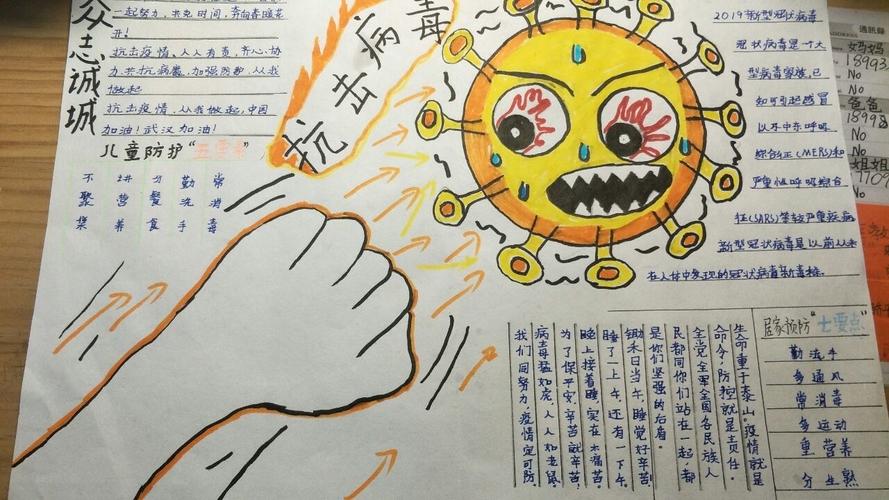 众志诚城
一起努力,共克时间,奔向春暖花
开!
抗击疫情、人人有责、齐心协
力、共抗病毒、加强防护、从我
做起
抗击疫情、从我做起,中国
加油!武汉加油!
儿童防护"五要素"
不聚集
讲营养
分餐食
勤洗手
常消毒
抗击病毒
2019新型冠状病毒
冠状病毒是一个大
型病毒家族,已
知可引起感冒
以及中东呼吸
综合征(MERS)和
严重性呼吸综合
征(SARS)等较严重疾病
新型冠状病毒是以前从未
在人体中发现的冠状病毒新毒株。
生命重于泰山。疫情就是
命令,防控就是责任。
全党全军全国各民族人
民都同你们站在一起,都
是你们坚强的后盾。
锄禾日当午,睡觉好辛苦,
睡了一上午,还有一下午。
晚上接着睡,实在太痛苦,
为了保平安,辛苦就辛苦,
病毒猛如虎,人人如老鼠。
我们同努力,疫情定可防
居家预防"七要点"
勤洗手
多通风
常消毒
多运动
重营养
分生熟
通訊錄
ADDRESS
妈妈
18993
No
No
爸爸
No
No
姐姐